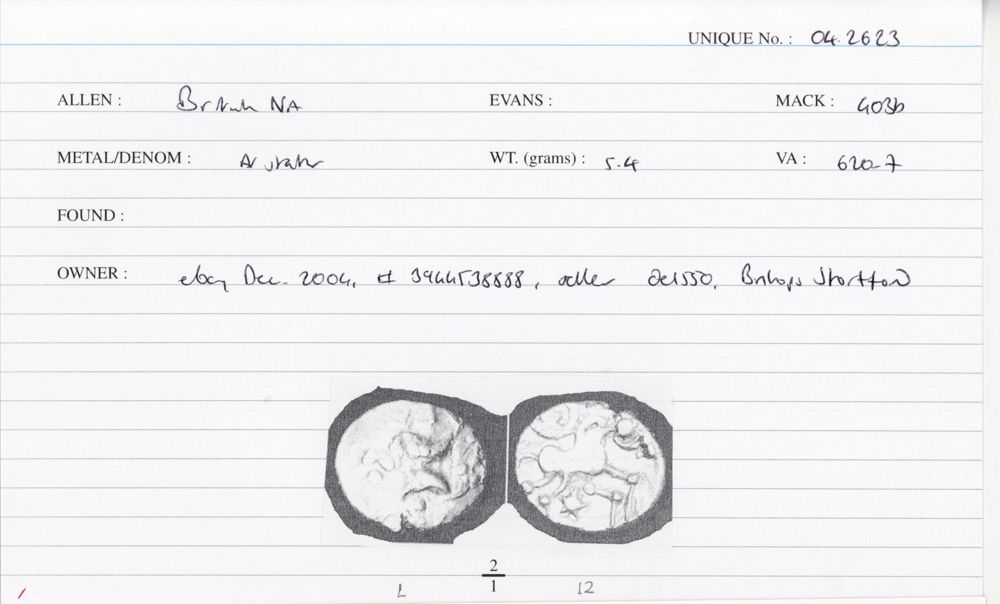 UNIQUE No. : 04.2623
ALLEN : British NA EVANS : MACK : 403b
METAL/DENOM : AV stater WT. (grams) : 5.4 VA : 620-7
FOUND :
OWNER : ebay Dec. 2004, # 3944538888, seller Bishops Stortford
2
1
L 12